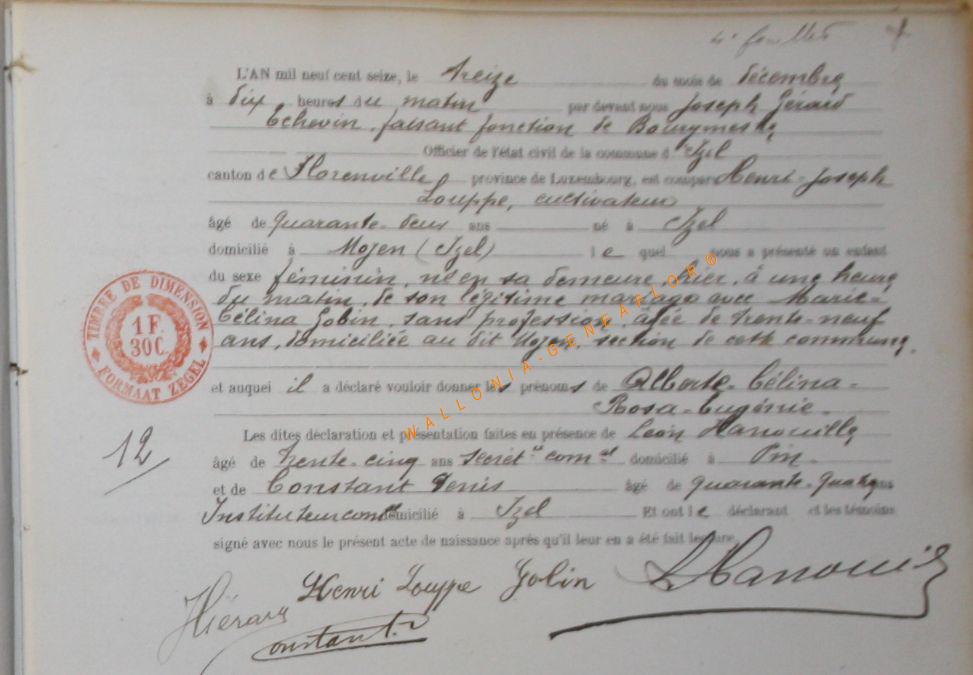 4e feuillet
L'AN mil neuf cent seize, le treize du mois de décembre
à dix heures du matin par devant nous Joseph Gérard
Echevin, faisant fonction de Bourgmestre
Officier de l'état civil de la commune d'Izel
canton de Florenville province de Luxembourg, est comparu Henri-Joseph
Louppe, cultivateur
âgé de quarante-deux ans né à Izel
domicilié à Moyen (Izel) le quel nous a présenté un enfant
du sexe féminin, né en sa demeure, hier, à une heure
du matin, de son légitime mariage avec Marie-
Célina Jobin, sans profession, agée de trente-neuf
ans, domiciliée au dit Moyen, section de cette commune,
et auquel il a déclaré vouloir donner les prénoms de Alberte-Célina-
Rosa-Eugénie.
Les dites déclaration et présentation faites en présence de Léon Hanouille
âgé de trente-cinq ans secrét.re com.al domicilié à Pin
et de Constant Denis âgé de quarante-quatre ans
Instituteur com.al domicilié à Izel Et ont le déclarant et les témoins
signé avec nous le présent acte de naissance après qu'il leur en a été fait lecture.
Henri Louppe Jobin LHanouille
Constant
12
TIMBRE DE DIMENSION
1 F.
30 C.
FORMAAT ZEGEL
WALLONIA-GENEARLOR©